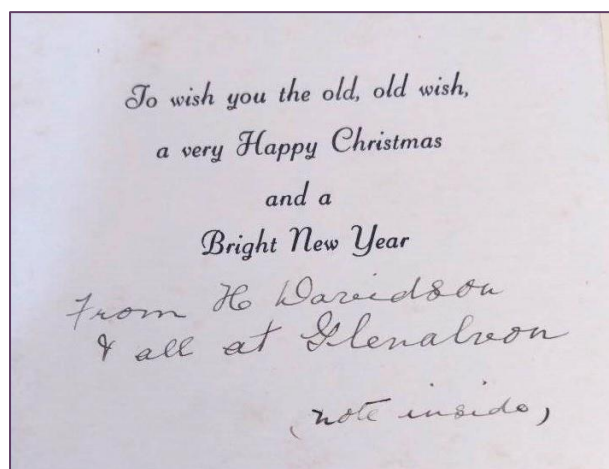 To wish you the old, old wish,
a very Happy Christmas
and a
Bright New Year
From H Davidson
& all at Glenalvon
(note inside)